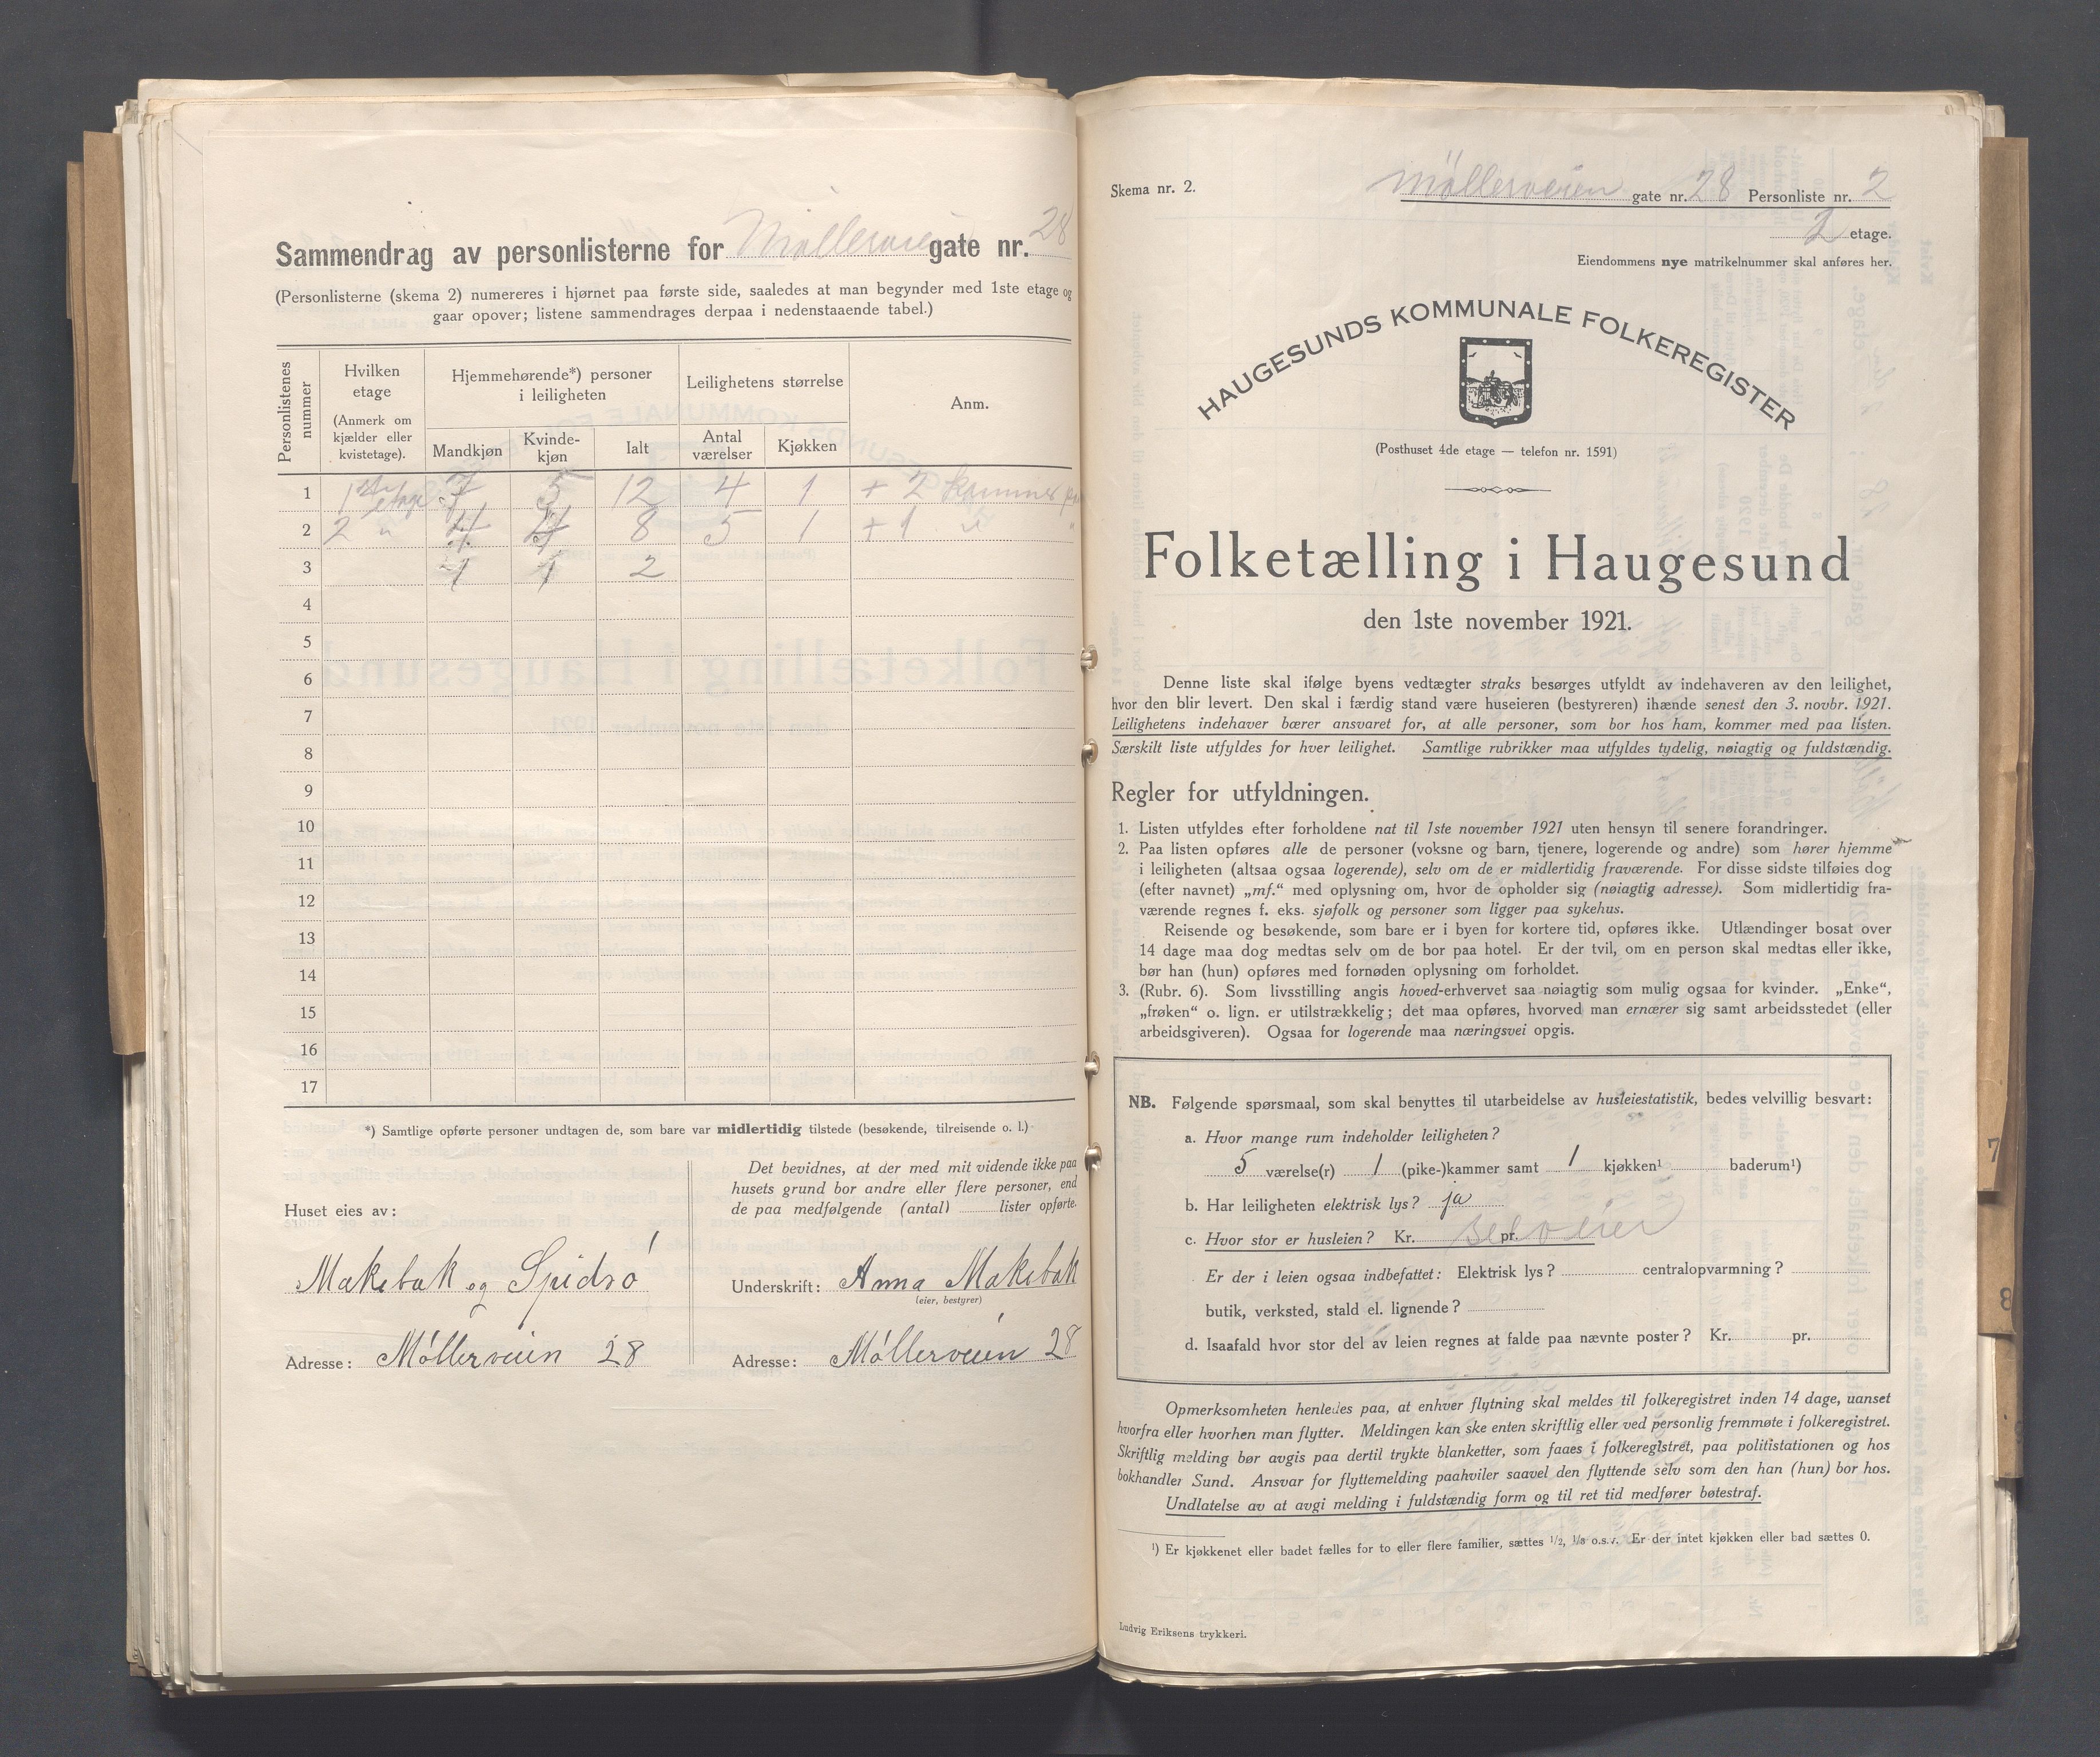 Sammendrag av personlisterne for Møllerveien gate nr. 28
(Personlisterne (skema 2) numereres i hjørnet paa første side, saaledes at man begynder med 1ste etage og
gaar opover; listene sammendrages derpaa i nedenstaaende tabel.)
Personlistenes nummer
Hvilken etage
(Anmerk om kjælder eller kvistetage).
Hjemmehørende*) personer i leiligheten
Leilighetens størrelse
Anm.
Mandkjøn Kvinde-kjøn Ialt Antal værelser Kjøkken
1 1ste etage 7 5 12 4 1 + 2 kammer
2 2 " 4 4 8 5 1 + 1 "
3 1 1 2
4
5
6
7
8
9
10
11
12
13
14
15
16
17
*) Samtlige opførte personer undtagen de, som bare var midlertidig tilstede (besøkende, tilreisende o. l.)
Huset eies av:
Makebak og Spidsø
Adresse: Møllerveien 28
Det bevidnes, at der med mit vidende ikke paa
husets grund bor andre eller flere personer, end
de paa medfølgende (antal) lister opførte.
Underskrift: Anna Makebak
(eier, bestyrer)
Adresse: Møllerveien 28
Skema nr. 2.
Møllerveien gate nr. 28 Personliste nr. 2
2 etage.
Eiendommens nye matrikelnummer skal anføres her.
HAUGESUNDS KOMMUNALE FOLKEREGISTER
(Posthuset 4de etage — telefon nr. 1591)
Folketælling i Haugesund
den 1ste november 1921.
Denne liste skal ifølge byens vedtægter straks besørges utfyldt av indehaveren av den leilighet,
hvor den blir levert. Den skal i færdig stand være huseieren (bestyreren) ihænde senest den 3. novbr. 1921.
Leilighetens indehaver bærer ansvaret for, at alle personer, som bor hos ham, kommer med paa listen.
Særskilt liste utfyldes for hver leilighet. Samtlige rubrikker maa utfyldes tydelig, nøiagtig og fuldstændig.
Regler for utfyldningen.
1. Listen utfyldes efter forholdene nat til 1ste november 1921 uten hensyn til senere forandringer.
2. Paa listen opføres alle de personer (voksne og barn, tjenere, logerende og andre) som hører hjemme
i leiligheten (altsaa ogsaa logerende), selv om de er midlertidig fraværende. For disse sidste tilføies dog
(efter navnet) „mf.“ med oplysning om, hvor de opholder sig (nøiagtig adresse). Som midlertidig fra-
værende regnes f. eks. sjøfolk og personer som ligger paa sykehus.
Reisende og besøkende, som bare er i byen for kortere tid, opføres ikke. Utlændinger bosat over
14 dage maa dog medtas selv om de bor paa hotel. Er der tvil, om en person skal medtas eller ikke,
bør han (hun) opføres med fornøden oplysning om forholdet.
3. (Rubr. 6). Som livsstilling angis hoved-erhvervet saa nøiagtig som mulig ogsaa for kvinder. „Enke“,
„frøken“ o. lign. er utilstrækkelig; det maa opføres, hvorved man ernærer sig samt arbeidsstedet (eller
arbeidsgiveren). Ogsaa for logerende maa næringsvei opgis.
NB. Følgende spørsmaal, som skal benyttes til utarbeidelse av husleiestatistik, bedes velvillig besvart:
a. Hvor mange rum indeholder leiligheten?
5 værelse(r) 1 (pike-)kammer samt 1 kjøkken¹ baderum¹)
b. Har leiligheten elektrisk lys? ja
c. Hvor stor er husleien? Kr. pr. selveier
Er der i leien ogsaa indbefattet: Elektrisk lys? centralopvarmning?
butik, verksted, stald el. lignende?
d. Isaafald hvor stor del av leien regnes at falde paa nævnte poster? Kr. pr.
Opmerksomheten henledes paa, at enhver flytning skal meldes til folkeregistret inden 14 dage, uanset
hvorfra eller hvorhen man flytter. Meldingen kan ske enten skriftlig eller ved personlig fremmøte i folkeregistret.
Skriftlig melding bør avgis paa dertil trykte blanketter, som faaes i folkeregistret, paa politistationen og hos
bokhandler Sund. Ansvar for flyttemelding paahviler saavel den flyttende selv som den han (hun) bor hos.
Undlatelse av at avgi melding i fuldstændig form og til ret tid medfører bøtestraf.
¹) Er kjøkkenet eller badet fælles for to eller flere familier, sættes 1/2, 1/3 o.s.v. Er der intet kjøkken eller bad sættes 0.
Ludvig Eriksens trykkeri.
7
8